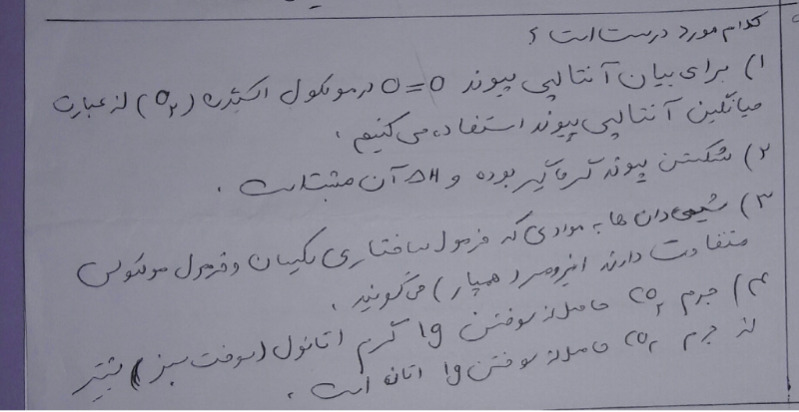 کدام مورد درست است؟
۱) برای بیان آنتالپی پیوند O=O در مولکول اکسیژن (O₂) از عبارت
میانگین آنتالپی پیوند استفاده می کنیم.
۲) شکستن پیوند گرماگیر بوده و ΔH آن مثبت است.
۳) شیمی دان ها به موادی که فرمول ساختاری یکسان و فرمول مولکولی
متفاوت دارند ایزومر (همپار) می گویند.
۴) جرم CO₂ حاصل از سوختن 1g گرم اتانول (سوخت سبز) بیشتر
از جرم CO₂ حاصل از سوختن 1g اتان است.